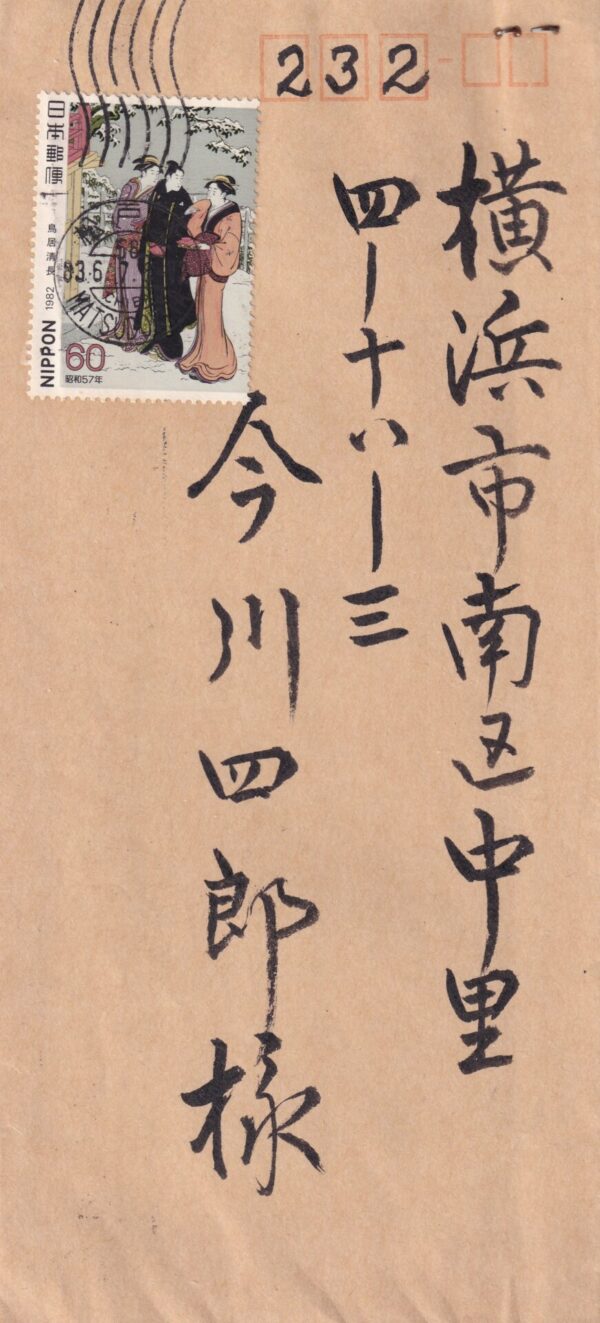 232
横浜市南区中里
四ー十八ー三
今川四郎様
日本郵便
鳥居清長
NIPPON 1982
60
昭和57年
83.6.7